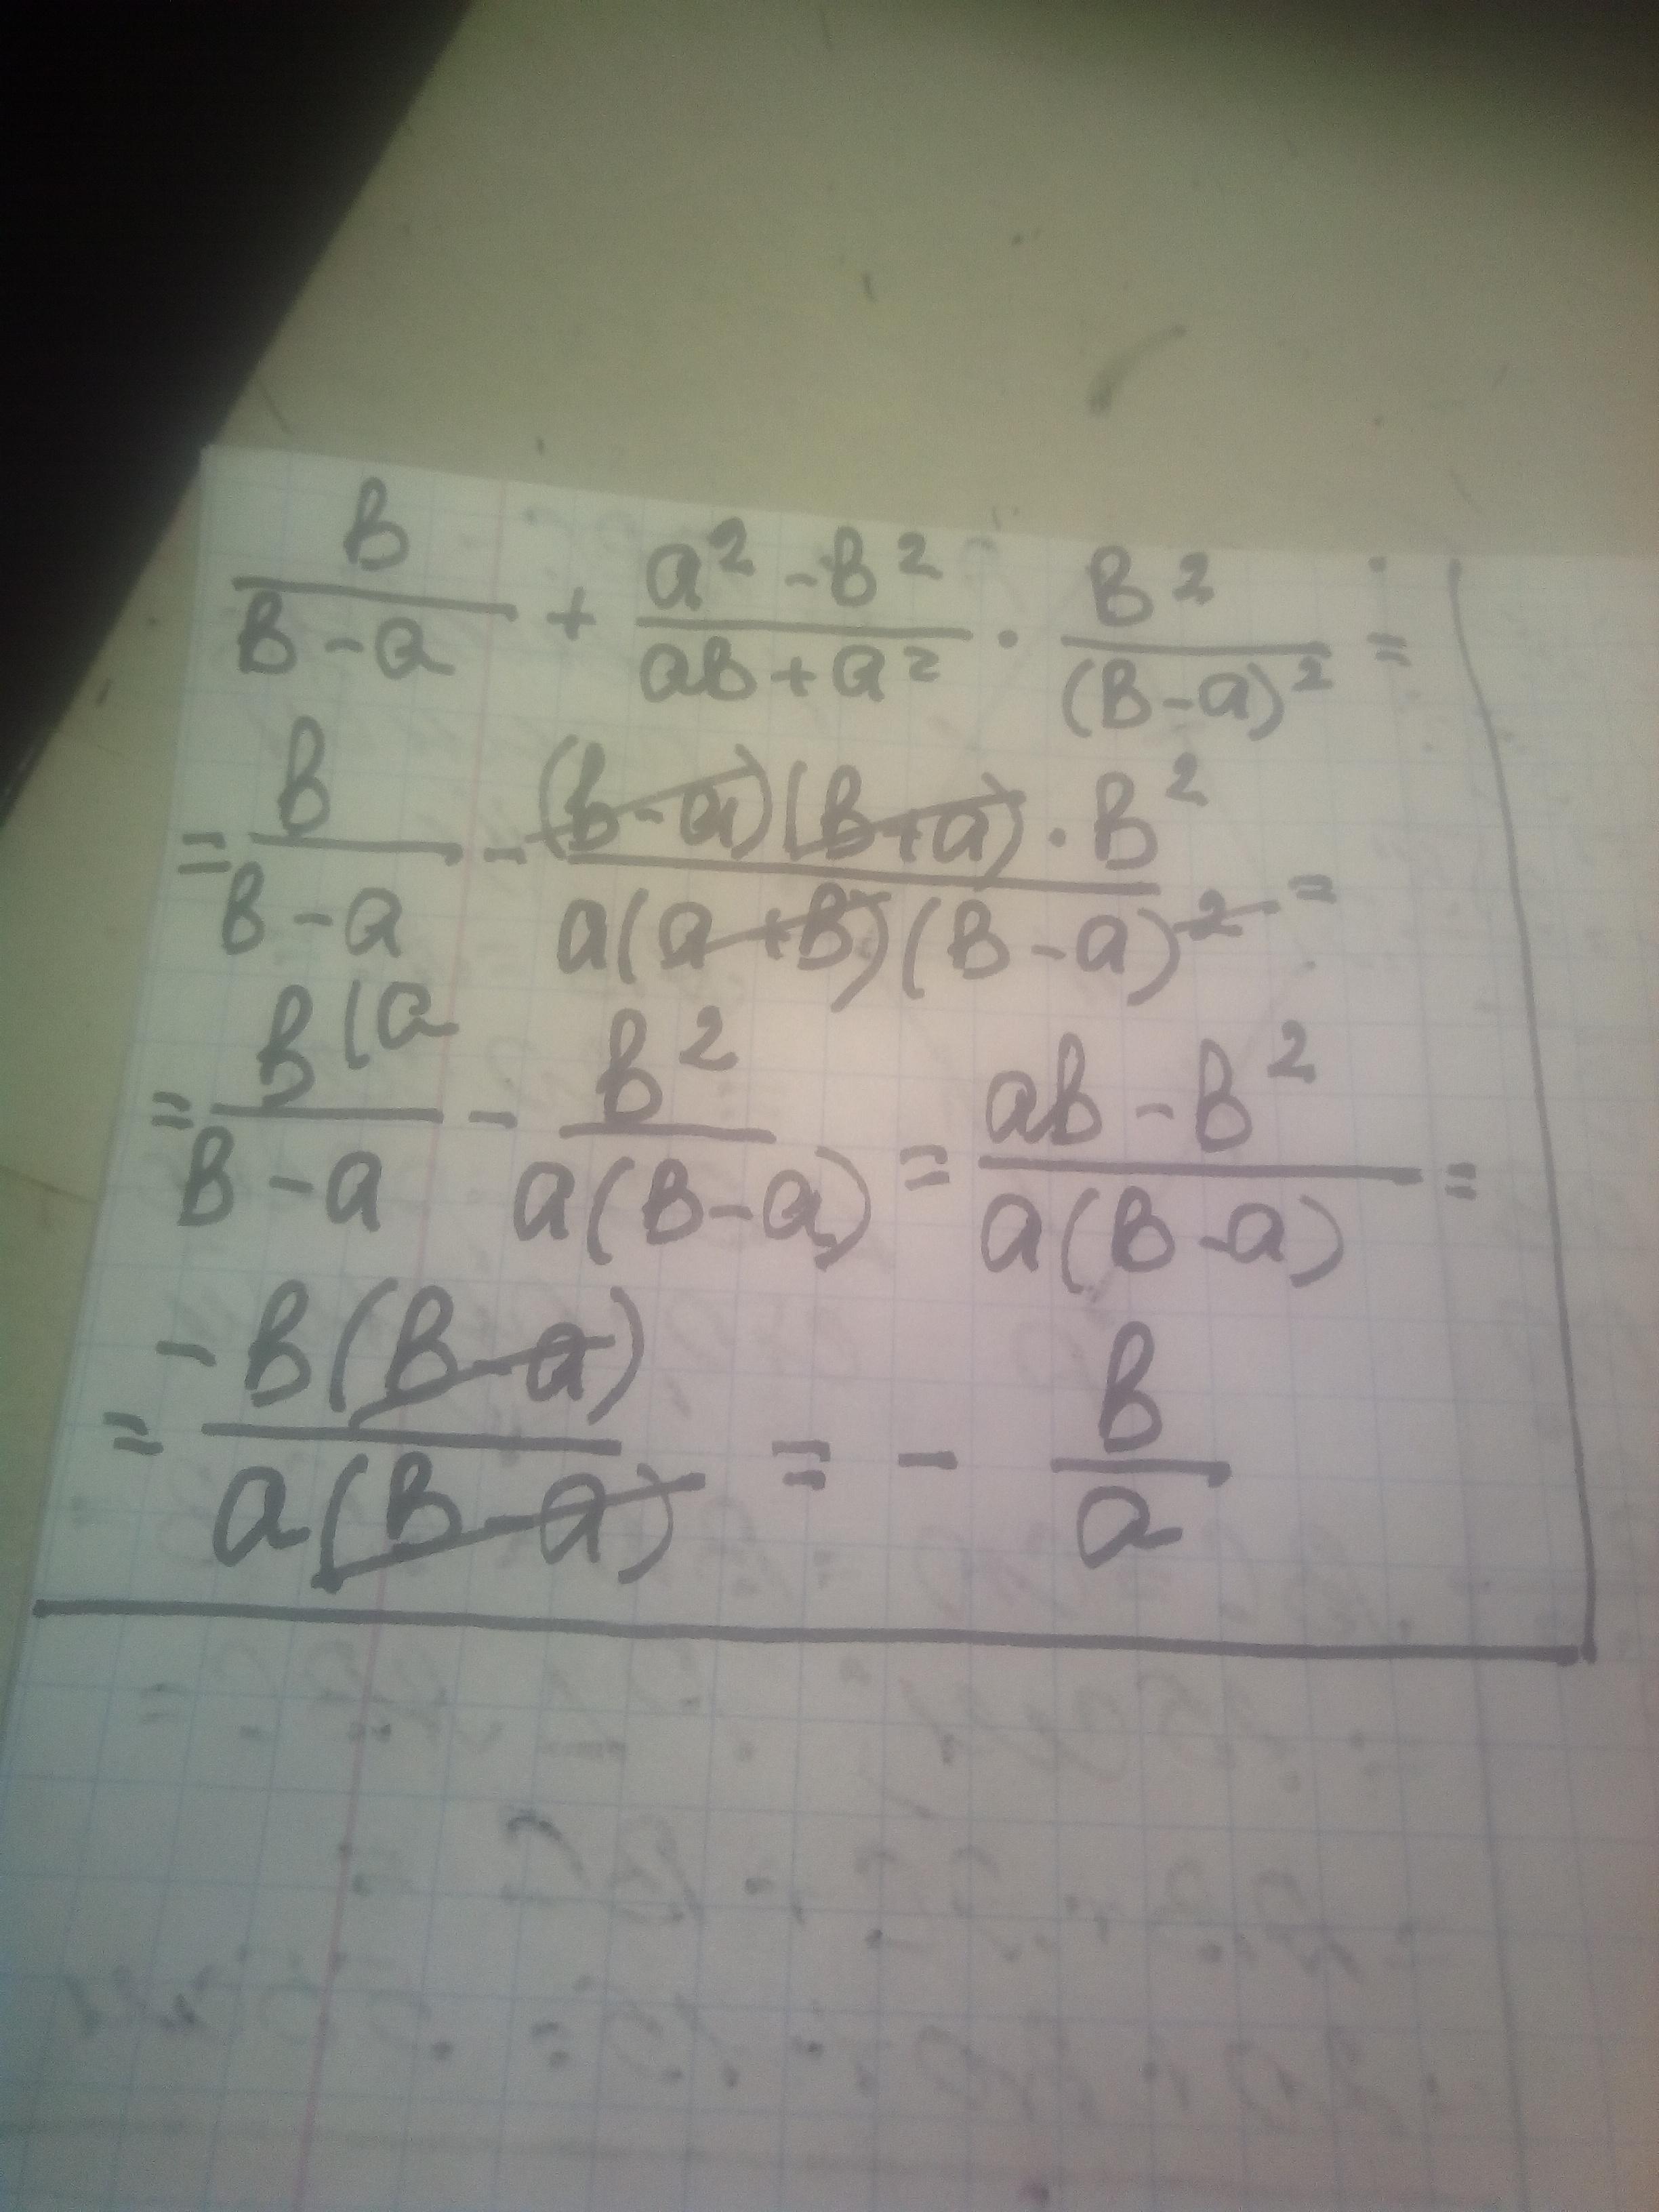 b/(b-a) + (a²-b²)/(ab+a²) · b²/(b-a)² =
= b/(b-a) - (b-a)(b+a)·b²/a(a+b)(b-a)² =
= b(a/(b-a) - b²/a(b-a) = (ab-b²)/a(b-a) =
= -b(b-a)/a(b-a) = - b/a